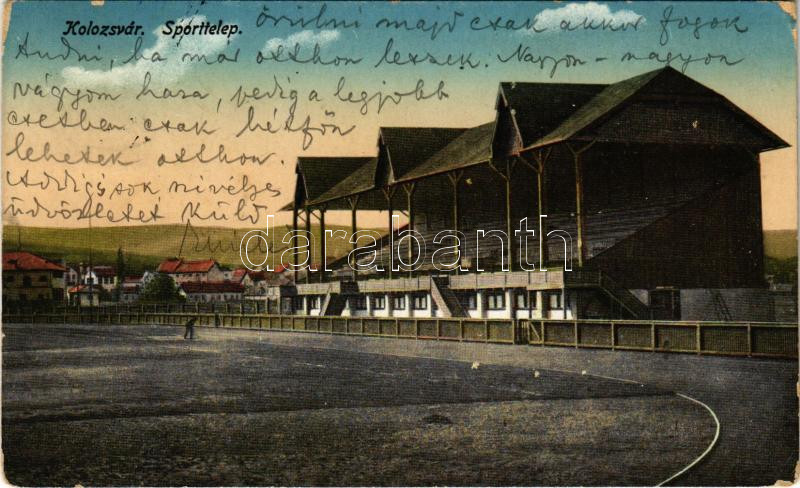 Kolozsvár. Sporttelep.
örülni majd csak akkor fogok
tudni, ha már otthon leszek. Nagyon-nagyon
vágyom haza, pedig a legjobb
esetben csak hétfőn
lehetek otthon.
Addig is sok szívélyes
üdvözletet küld
darabanth